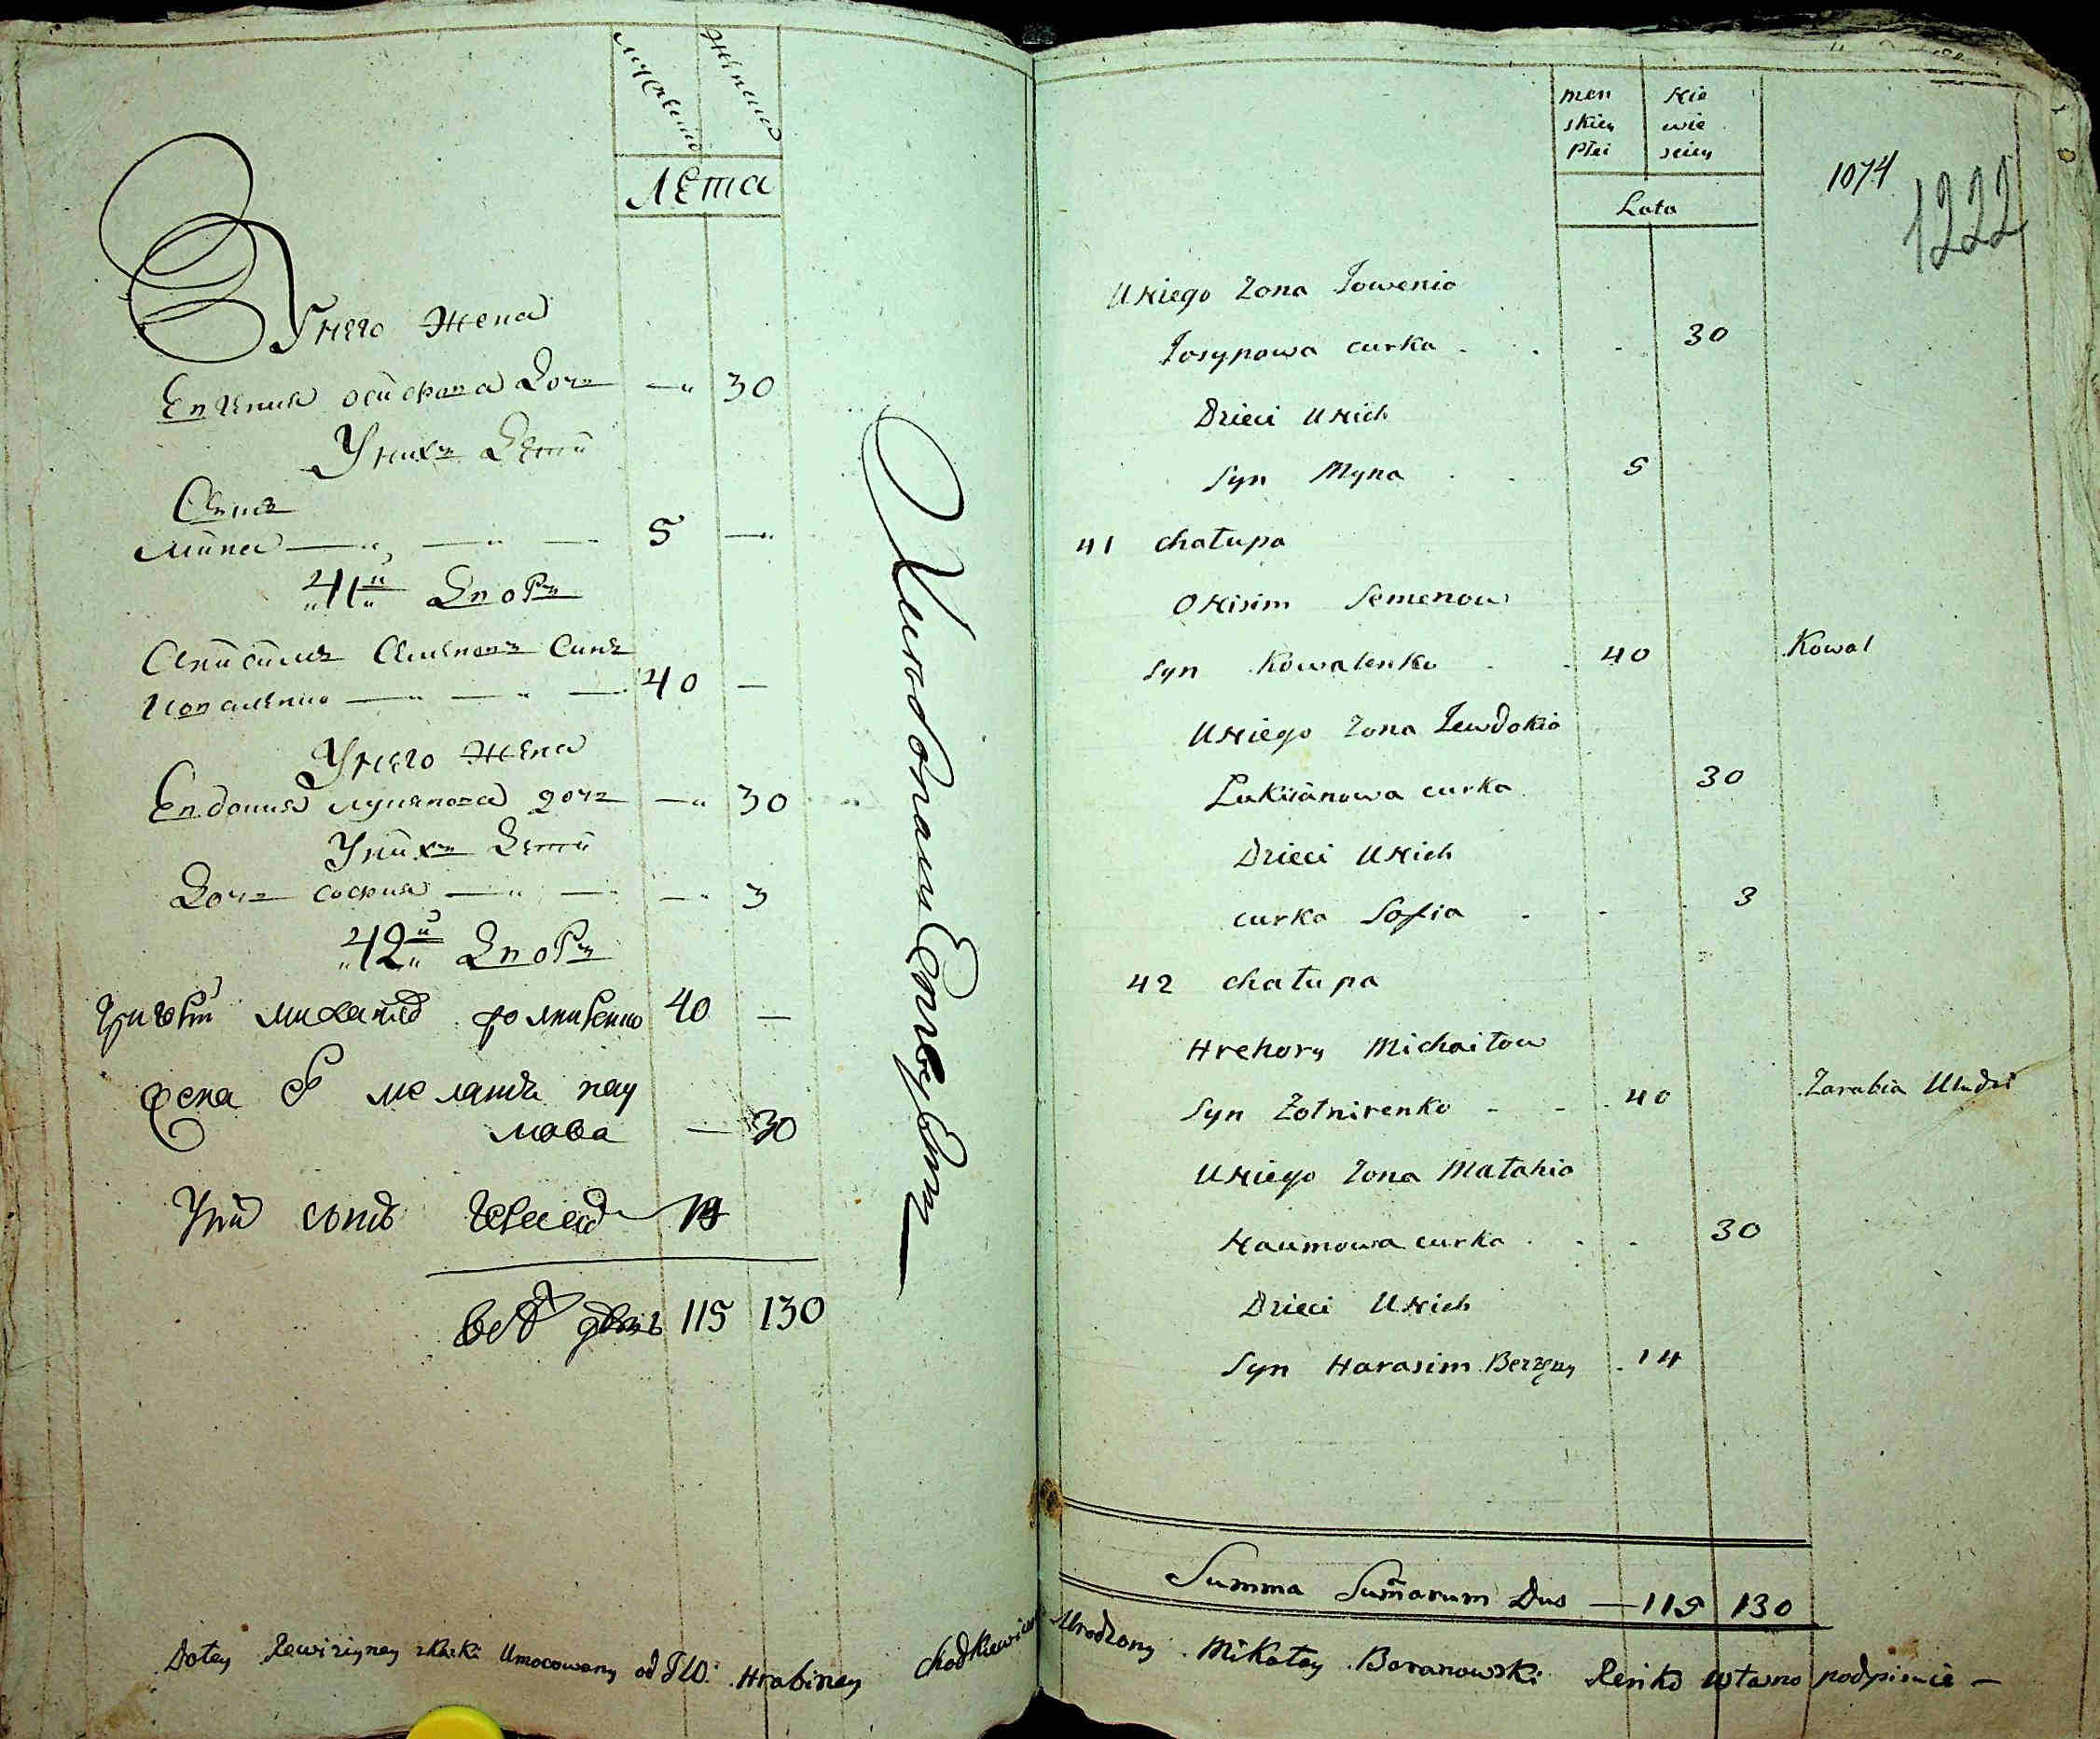 мужеска
женска
Лета
У него жена
Евгения осипова дочь — 30
У них дети
Сынъ
Мина — 5 —
41й Дворъ
Анисимъ Семеновъ Сынъ
Коваленко — 40 —
У него жена
Евдокия лукянова дочь — 30
У них дети
Дочь софия — 3
42й Дворъ
михайловъ 40 —
жена его наумова — 30
У них сынъ 14
115 130
men skiey płci
Nie wie sciey
Lata
1074
1222
U Niego Zona Jowenia
Josypowa curka . . . 30
Dzieci U Nich
Syn Myna . . 5
41 chałupa
ONisim Semenow
Syn Kowalenko . . 40 Kowal
U Niego Zona Jewdokia
Łukianowa curka 30
Dzieci U Nich
curka Sofia - - . 3
42 chałupa
Hrehory Michaiłow
Syn Żołnirenko - - . 40 Zarabia U ludzi
U Niego Zona Małahia
Naumowa curka . . . 30
Dzieci U Nich
Syn Harasim . 14
Summa Sumarum Dus — 115 130
Do tey Rewizyiney skaski Umocowany od JW. Hrabiney Chodkiewiczowey Urodzony Mikołay Baranowski Renko własno podpisuie —